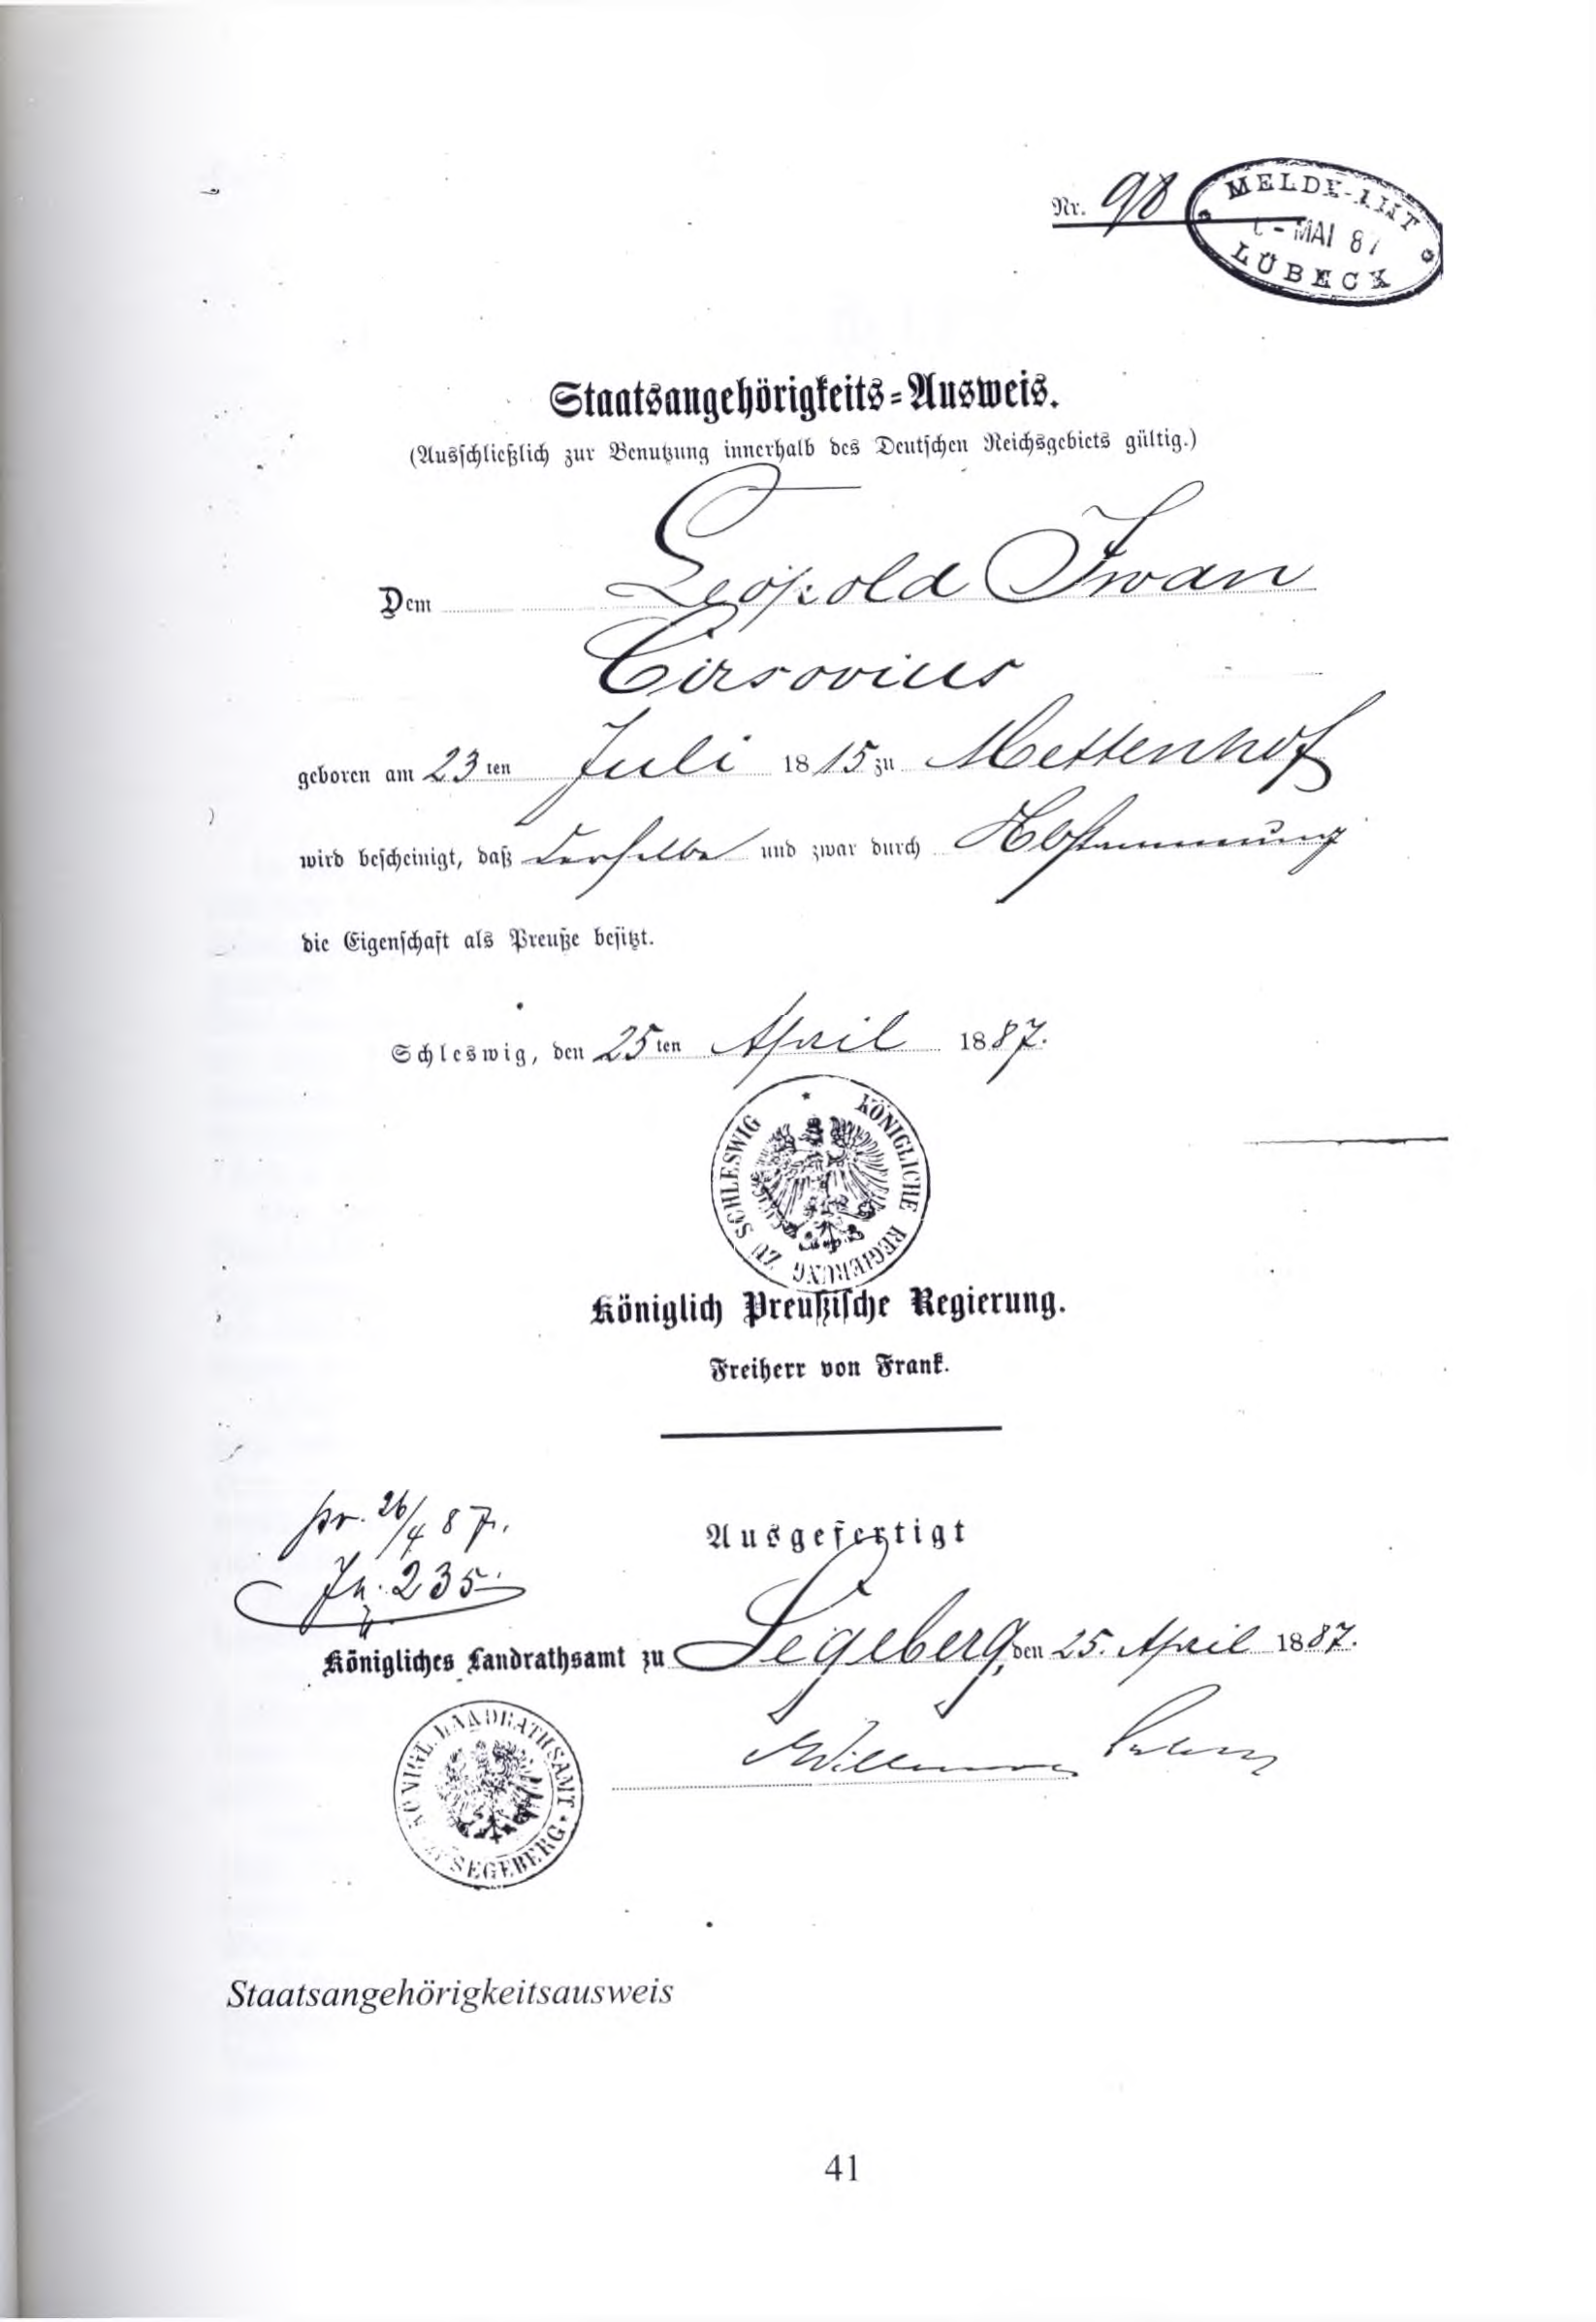 Nr. 98
MELDE-AMT
MAI 87
LÜBECK
Staatsangehörigkeits-Ausweis.
(Ausschließlich zur Benutzung innerhalb des Deutschen Reichsgebiets gültig.)
Dem Leopold Iwan
Cirsovius
geboren am 23ten Juli 1815 zu Mettenhof
wird bescheinigt, daß derselbe und zwar durch Abstammung
die Eigenschaft als Preuße besitzt.
Schleswig, den 25ten April 1887.
KÖNIGLICHE REGIERUNG ZU SCHLESWIG
Königlich Preußische Regierung.
Freiherr von Frank.
pr. 26/4 87.
Ausgefertigt
Jn. 235.
Königliches Landrathsamt zu Segeberg, den 25. April 1887.
KÖNIGL. LANDRATHSAMT ZU SEGEBERG
Staatsangehörigkeitsausweis
41